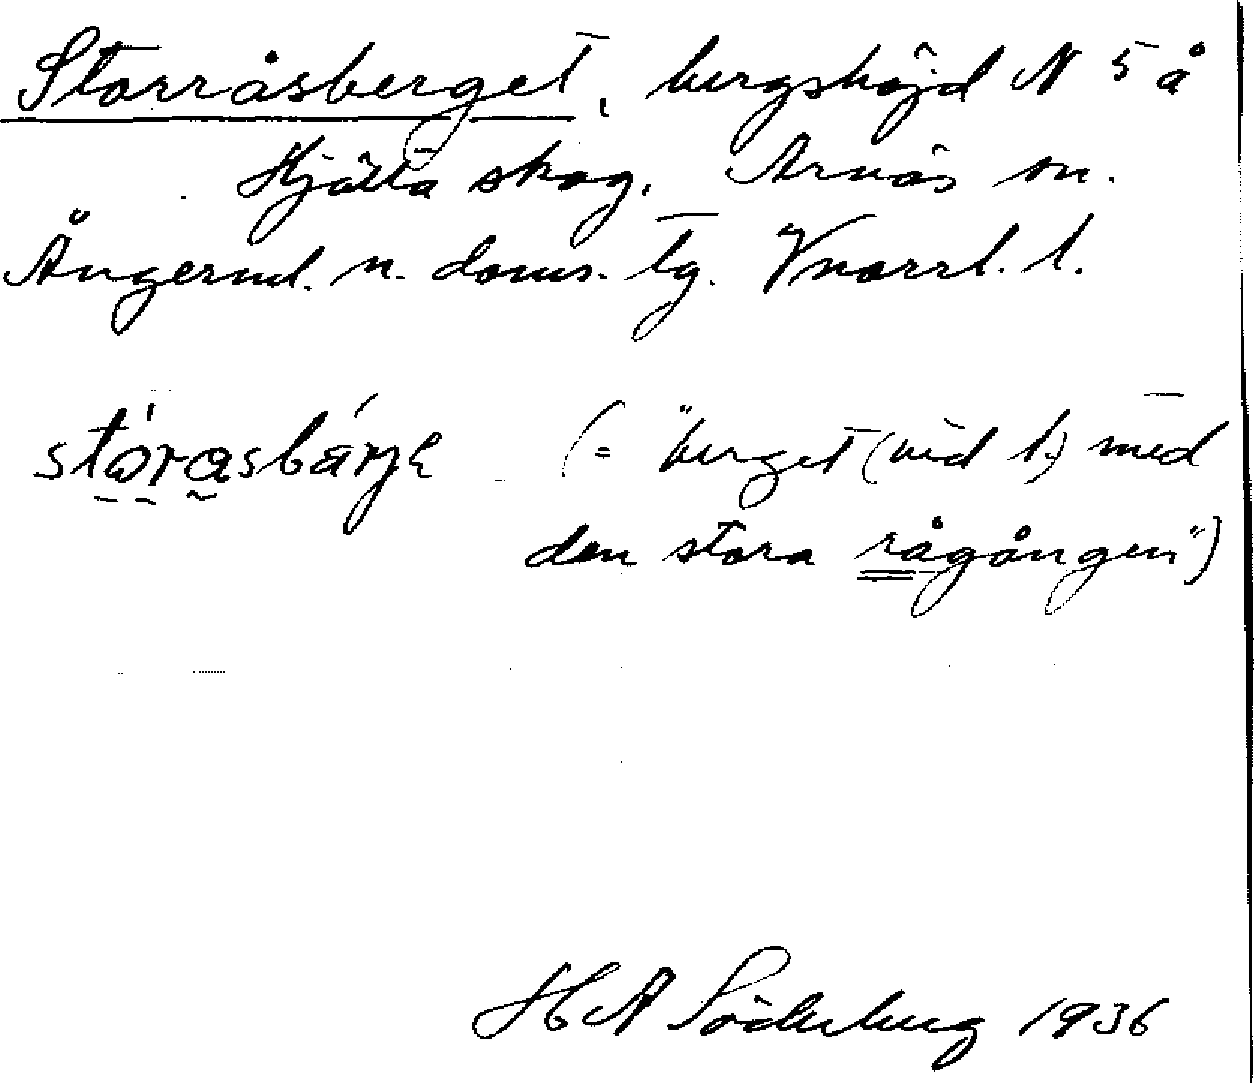 Storråsberget, bergshöjd N 5 å
Hjältä skog, Arnäs sn.
Ångerml. n. doms. tg. Vnorrl. l.
stórasbárjɛ (= "berget (vid l.) med
den stora rågången")
HA Söderberg 1936